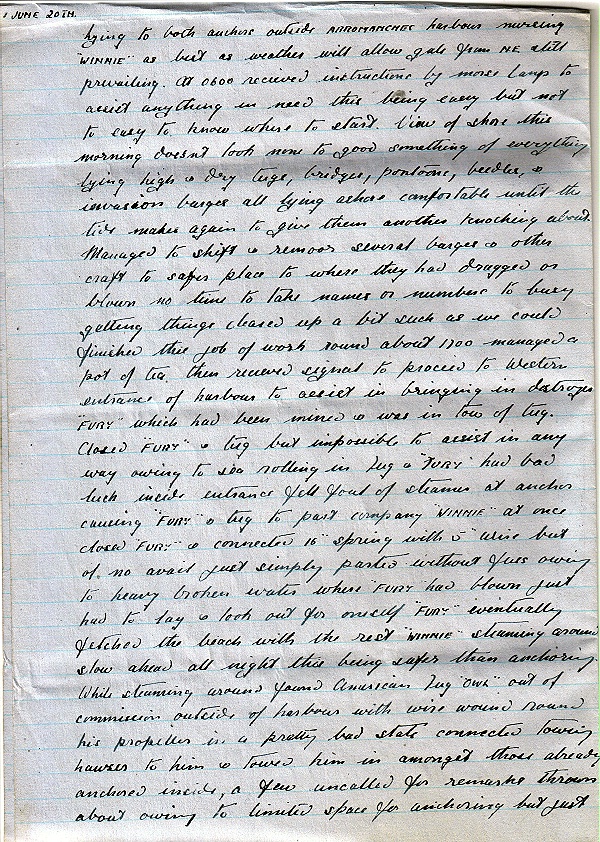 JUNE 20TH.
Lying to both anchors outside ARROMANCHES harbour nursing
"WINNIE" as best as weather will allow gale from NE still
prevailing. At 0600 recieved instructions by morse lamp to
assist anything in need this being easy but not
to easy to know where to start. View of shore this
morning doesn't look none to good something of everything
lying high & dry tugs, bridges, pontoons, beetles, &
invasion barges all lying ashore comfortable until the
tide makes again to give them another knocking about.
Managed to shift & remoor several barges & other
craft to safer place to where they had dragged or
blown no time to take names or numbers to busy
getting things cleared up a bit such as we could
finished this job of work round about 1700 managed a
pot of tea, then recieved signal to proceed to Western
entrance of harbour to assist in bringing in destroyer
"FURY" which had been mined & was in tow of tug.
Closed "FURY" & tug but impossible to assist in any
way owing to sea rolling in tug & "FURY" had bad
luck inside entrance fell foul of steamer at anchor
causing "FURY" & tug to part company "WINNIE" at once
closed "FURY" & connected 16" spring with 5" wire but
of no avail just simply parted without fuss owing
to heavy broken water where "FURY" had blown just
had to lay & look out for oneself "FURY" eventually
fetched the beach with the rest "WINNIE" steaming around
slow ahead all night this being safer than anchoring.
While steaming around found American tug "OWL" out of
commission outside of harbour with wire wound round
his propeller in a pretty bad state connected towing
hawser to him & towed him in amongst those already
anchored inside, a few uncalled for remarks thrown
about owing to limited space for anchoring but just